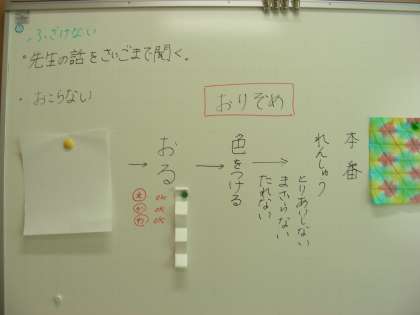 ・ふざけない
・先生の話をさいごまで聞く。
・おこらない
おりぞめ
本番
れんしゅう
とりあいしない
まざらない
たれない
→
色をつける
→
おる
→
OK
OK
OK